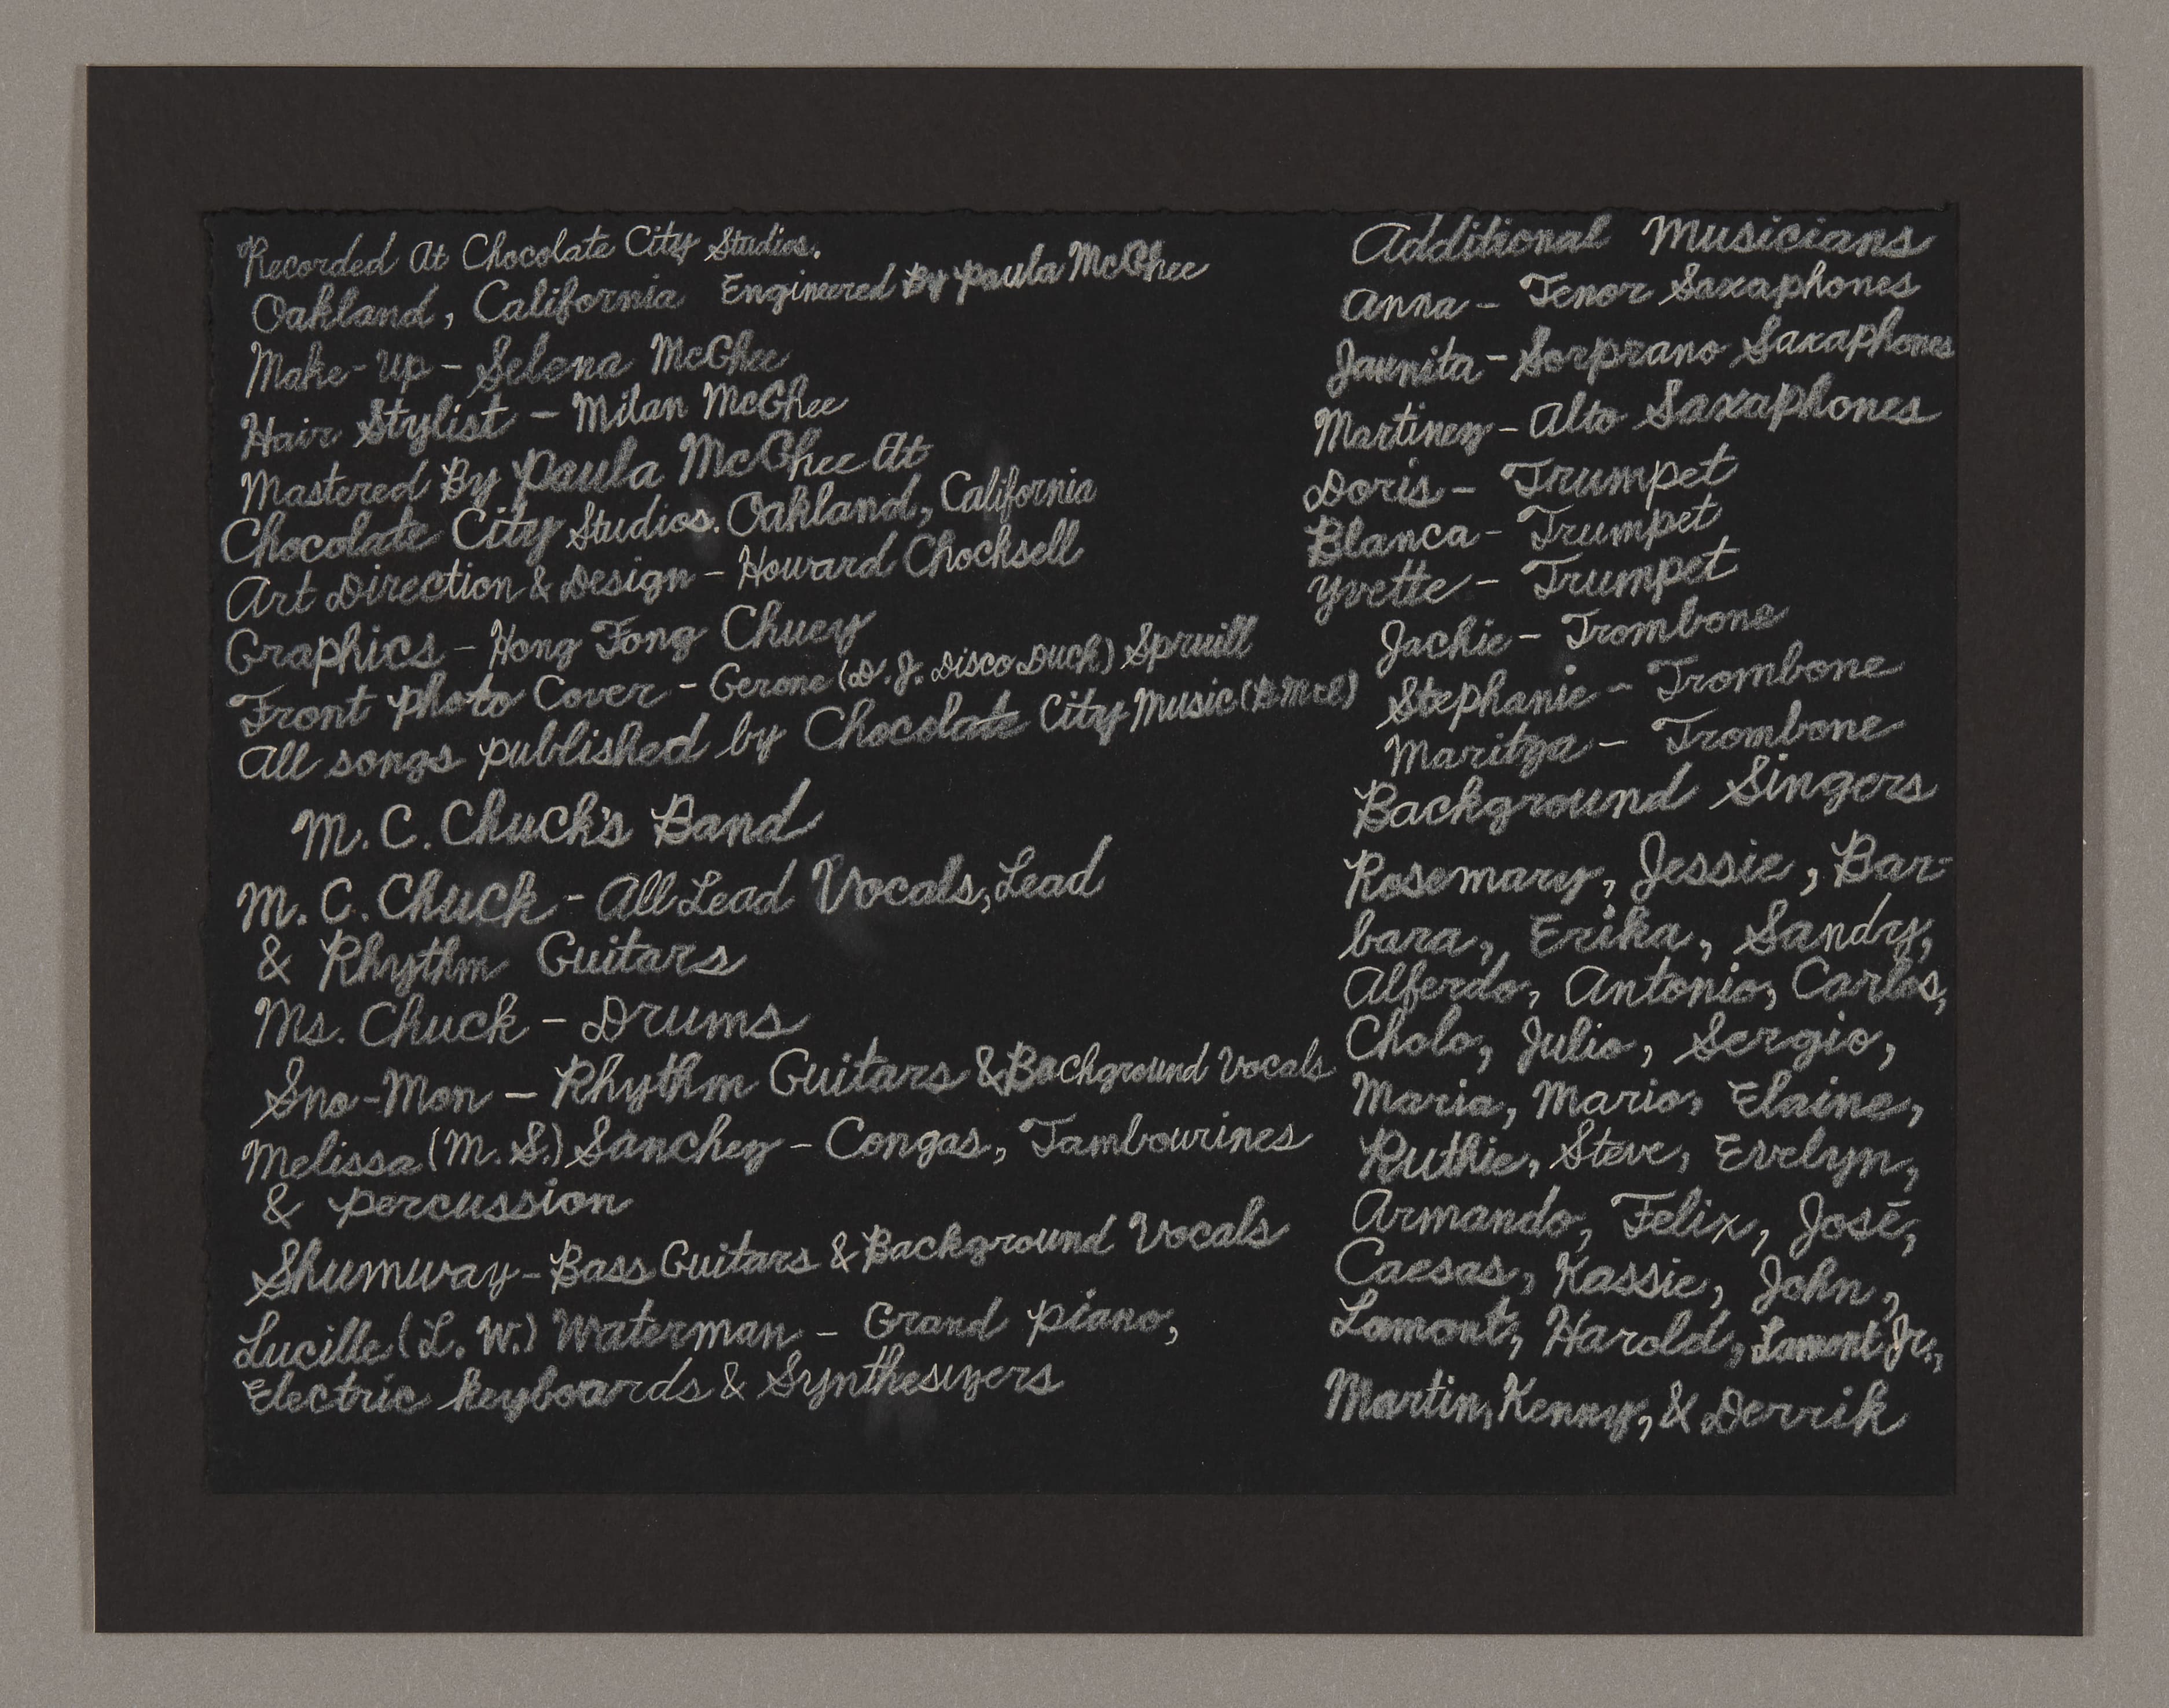 Recorded At Chocolate City Studios.
Oakland, California Engineered By Paula McGhee
Make-up - Selena McGhee
Hair Stylist - Milan McGhee
Mastered By Paula McGhee At
Chocolate City Studios. Oakland, California
Art Direction & Design - Howard Chocksell
Graphics - Hong Fong Chuey
Front Photo Cover - Gerone (D.J. Disco Duck) Spruill
All songs published by Chocolate City Music
M.C. Chuck's Band
M.C. Chuck - All Lead Vocals, Lead
& Rhythm Guitars
Ms. Chuck - Drums
Sno-Mon - Rhythm Guitars & Background Vocals
Melissa (M.S.) Sanchez - Congas, Tambourines
& percussion
Shumway - Bass Guitars & Background Vocals
Lucille (L.W.) Waterman - Grand piano,
Electric keyboards & Synthesizers
Additional Musicians
Anna - Tenor Saxaphones
Jaunita - Sorprano Saxaphones
Martinez - Alto Saxaphones
Doris - Trumpet
Blanca - Trumpet
Yvette - Trumpet
Jackie - Trombone
Stephanie - Trombone
Maritza - Trombone
Background Singers
Rosemary, Jessie, Bar-
bara, Erika, Sandry,
Alferdo, Antonio, Carlos,
Cholo, Julio, Sergio,
Maria, Mario, Elaine,
Ruthie, Steve, Evelyn,
Armando, Felix, José,
Caesas, Kassie, John,
Lamont, Harold, Lamont Jr.,
Martin, Kenny, & Derrik